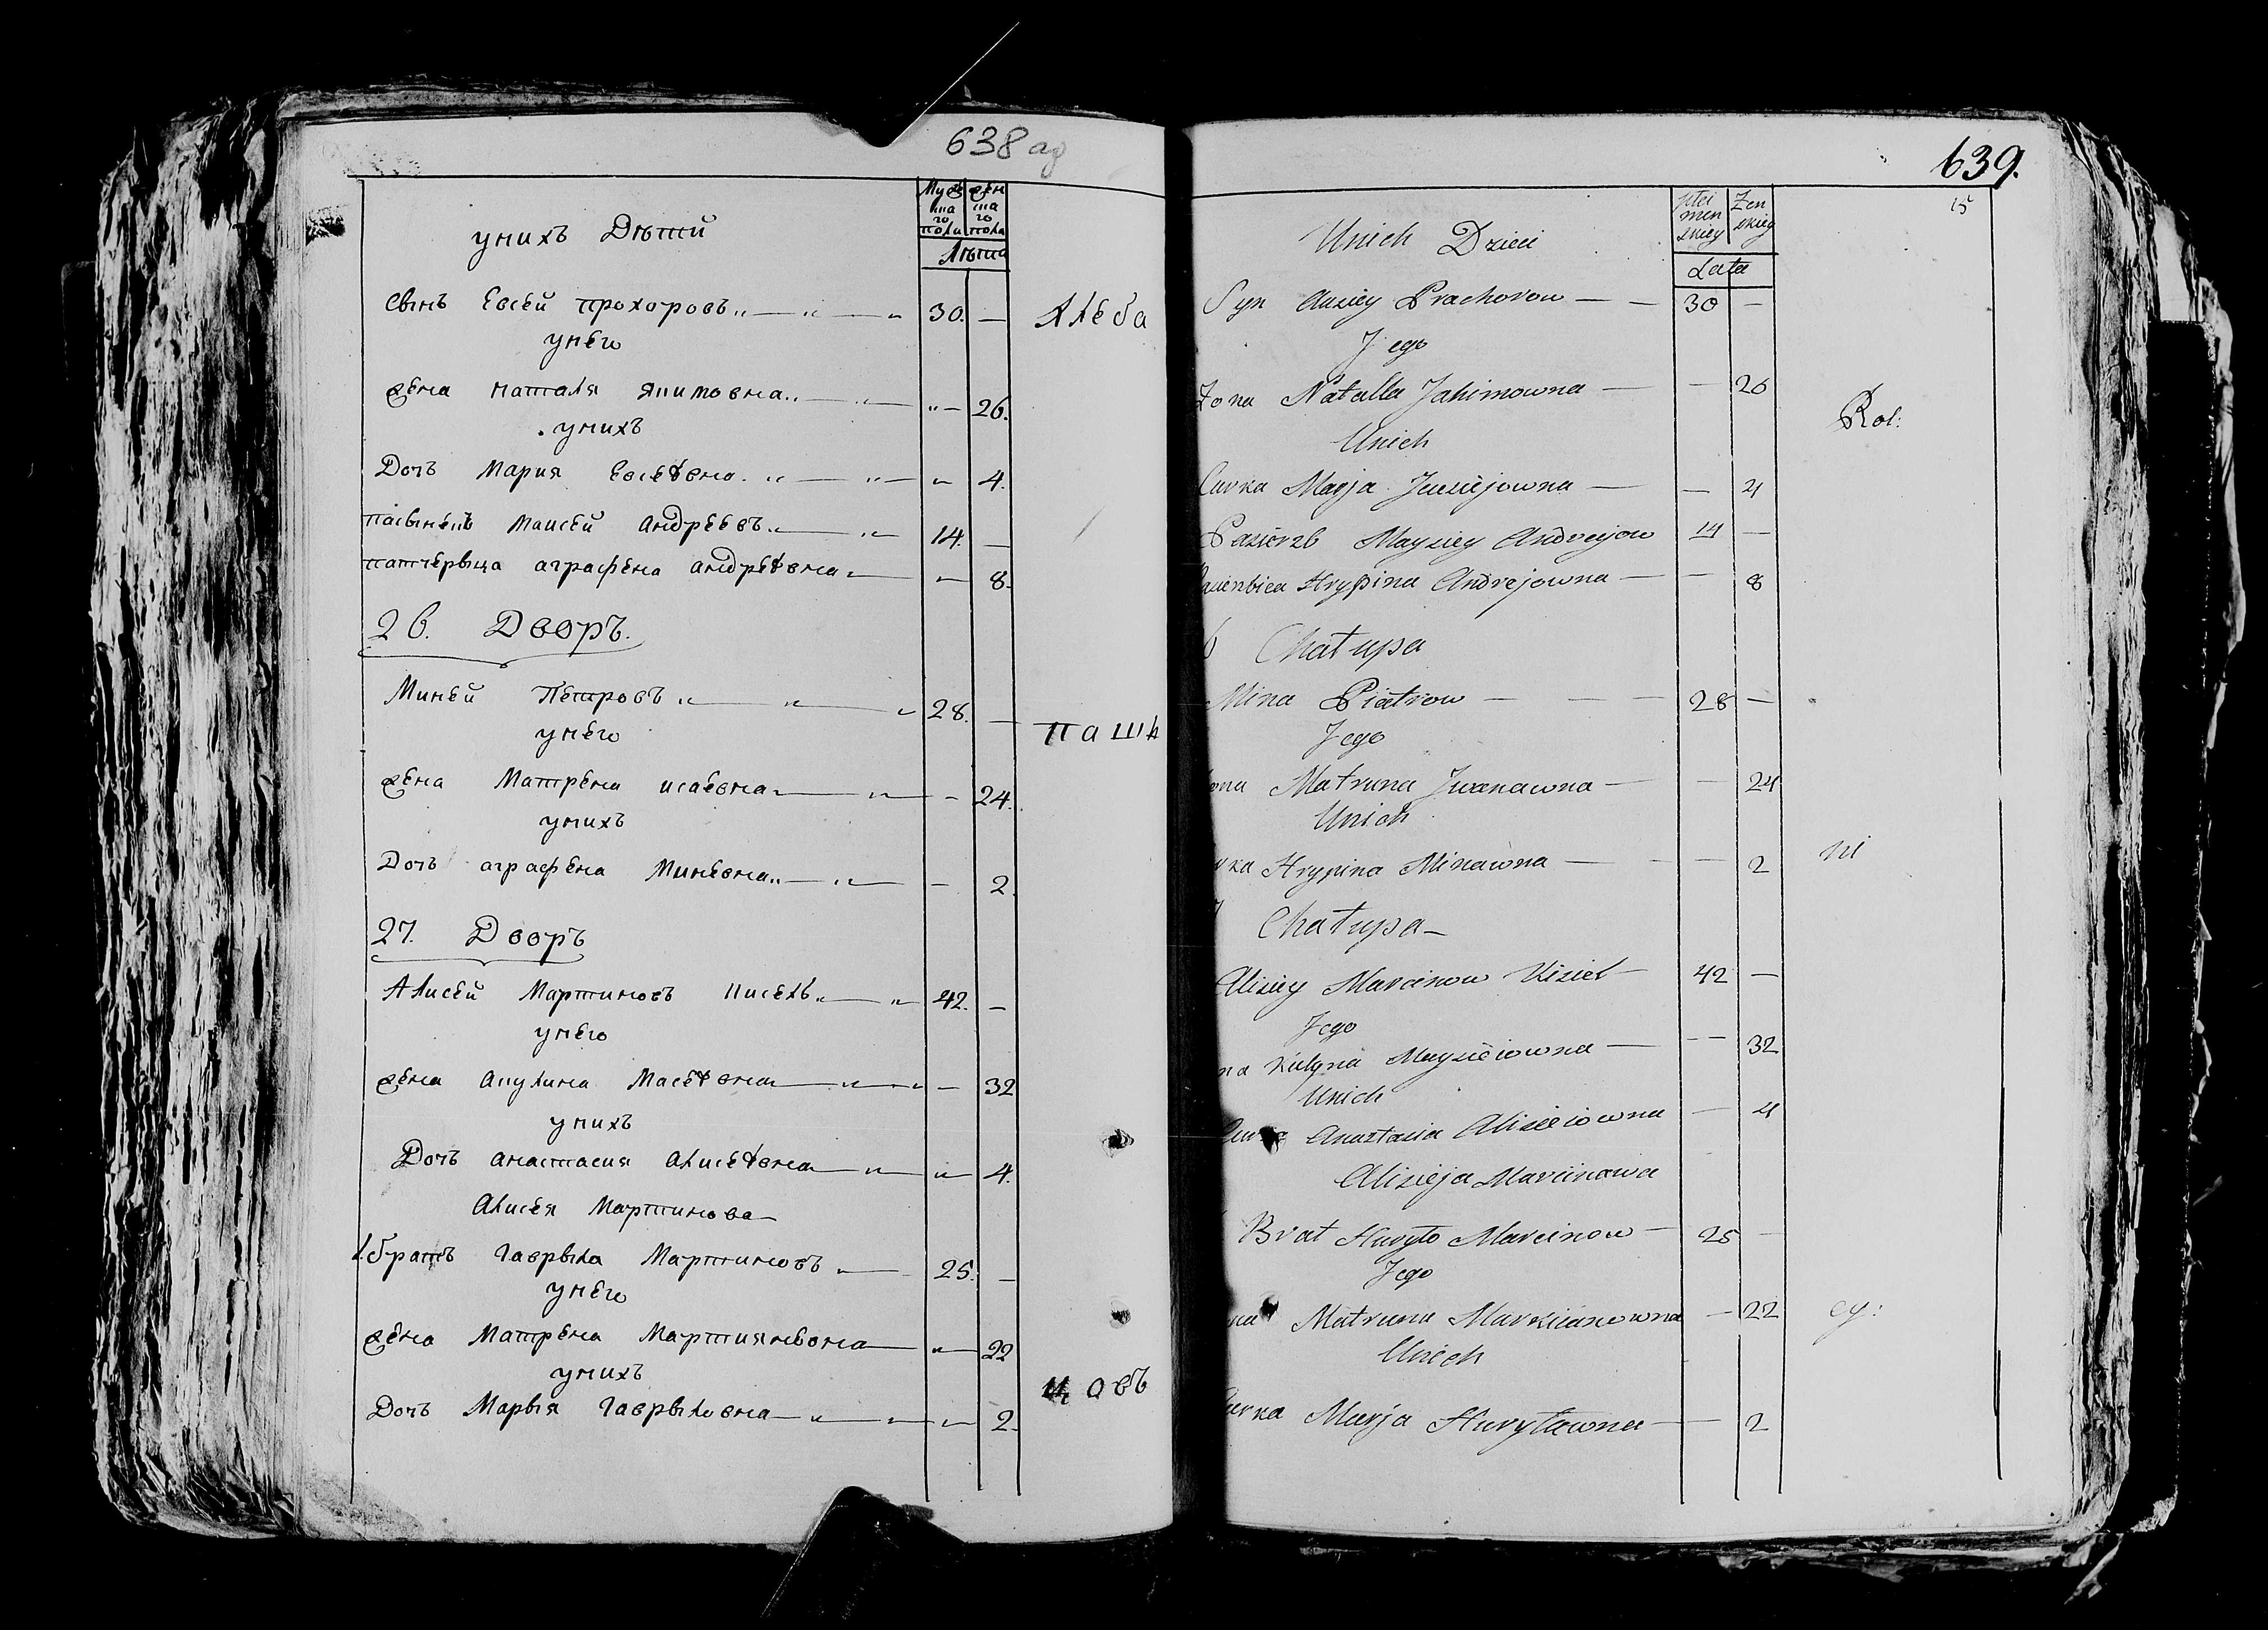 638 аf
Муж
ска
го
пола
жен
ска
го
пола
Лѣта
унихъ Дѣтй
Сынъ Евсей Прохоровъ 30. —
Хлеба
унего
жена Наталя Якимовна — 26.
унихъ
Дочъ Мария Евсеѣвна — 4.
пасынекъ Маисей Андреевъ 14. —
патчерыца аграфена андреѣвна — 8.
26. Дворъ.
Миней Петровъ 28. —
паши
унего
жена Матрена исаевна — 24.
унихъ
Дочъ аграфена Миневна — 2.
27. Дворъ
Алисей Мартиновъ Кисель 42. —
унего
жена Акулина Масеѣвна — 32
унихъ
Дочъ анастасия Алисеѣвна — 4.
Алисея Мартинова
1. братъ Гаврыла Мартиновъ 25. —
унего
жена Матрена Мартияневна — 22
унихъ
цовъ
Дочъ Марыя Гаврыловна — 2.
639.
15
płci
men
skiey
Zen
skiey
Lata
Unich Dzieci
Syn Auziey Prachorow — 30 —
Jego
Zona Natalla Jakimowna — 26
Rol:
Unich
Curka Marja Jewziejowna — 4
Pazierzb Mayziey Andreyow 14 —
Hrypina Andrejowna — 8
6 Chałupa
Mina Piatrow — 28 —
Jego
ona Matruna Jwanawna — 24
Unich
rka Hrypina Minawna — 2
ni
7 Chałupa
Aliziey Marcinow Kisiel 42 —
Jego
na Kulyna Mayzieiowna — 32
Unich
Curka Anaztazia Alizieiowna — 4
Alizieja Marcinawa
Brat Huryło Marcinow 25 —
Jego
na Matruna Markianowna — 22
cy:
Unich
urka Marja Huryławna — 2